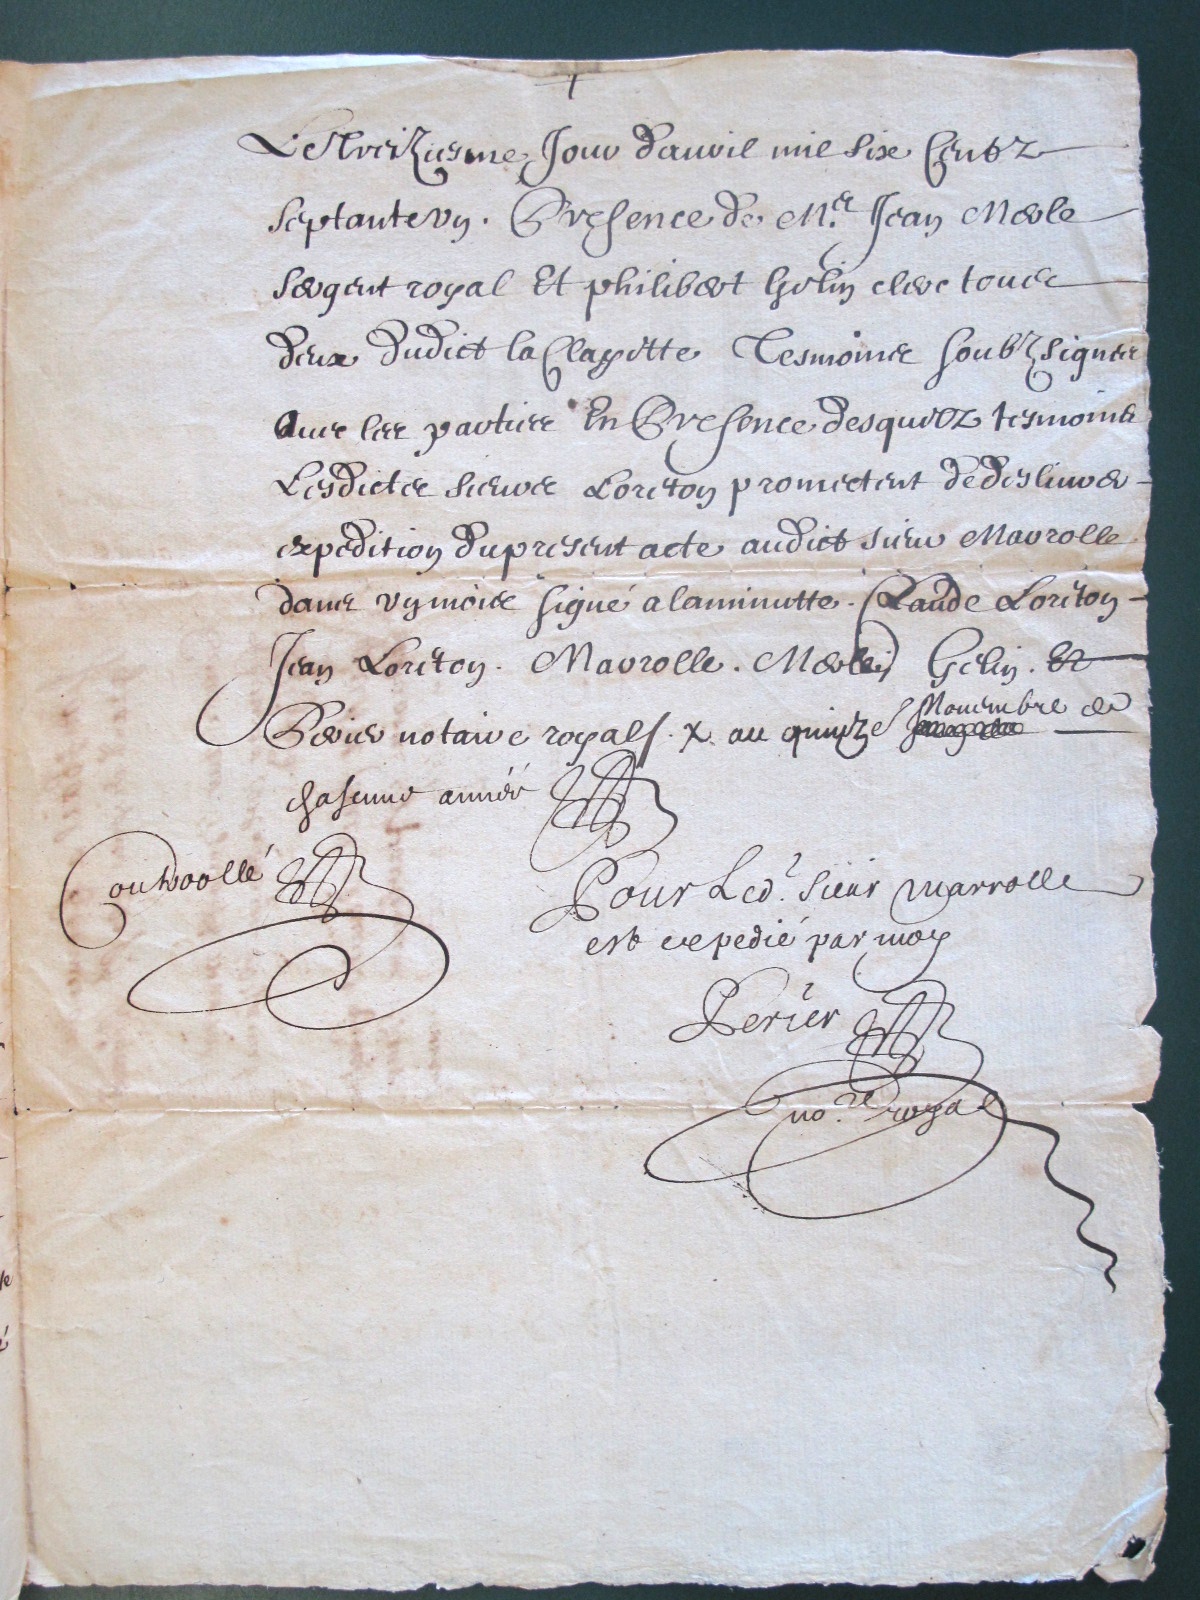 Le Treiziesme Jour d'auril mil six Centz
septante vn. Presence de Mre Jean Merle
sergent royal Et philibert Gelin clerc tous
deux dudict la Clayette Tesmoins soubz signes
Auec les parties En Presence desquelz tesmoins
Lesdictes sieurs Loreton promectent de desliurer
expedition du present acte audict sieur Marolle
dans vn mois signé a la minutte. Claude Loreton
Jean Loreton. Marolle. Merle, Gelin. Et
Perier notaire royal. x au quinze Nouembre de
chascune année
Controollé
Pour Led. sieur marrolle
est expedié par moy
Perier
no.re royal